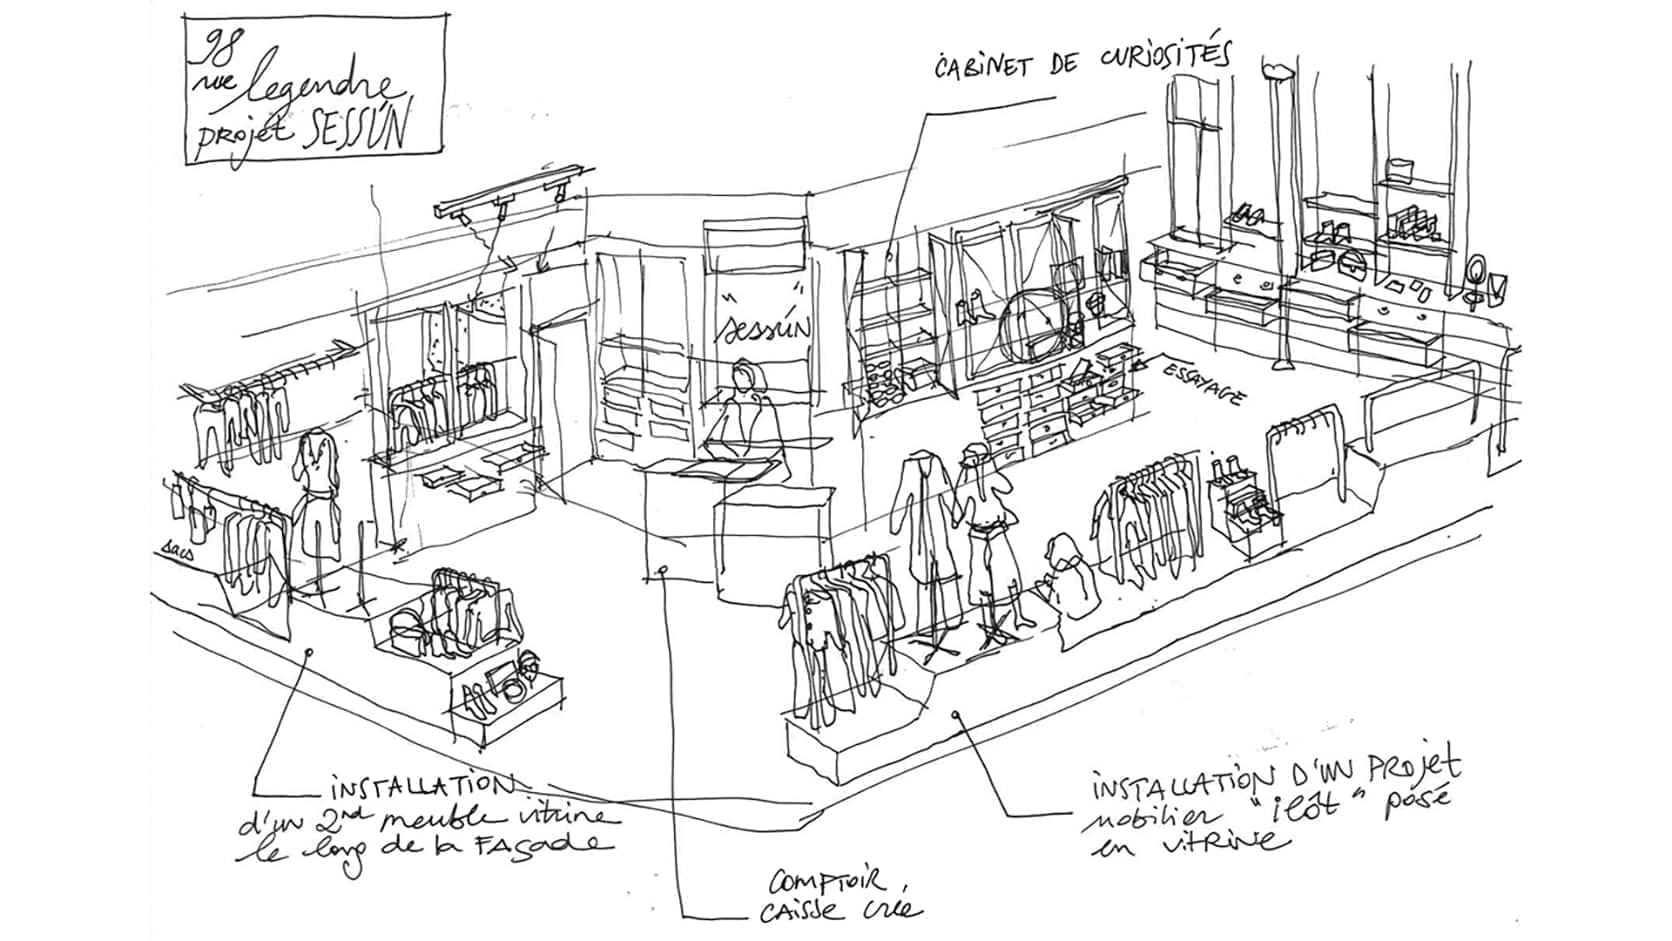 98
rue legendre
projet SESSÙN
CABINET DE CURIOSITÉS
"sessùn"
ESSAYAGE
sacs
INSTALLATION
d'un 2nd meuble vitrine
le long de la FAÇADE
INSTALLATION D'UN PROJET
mobilier "ilôt" posé
en VITRINE
COMPTOIR,
CAISSE créé